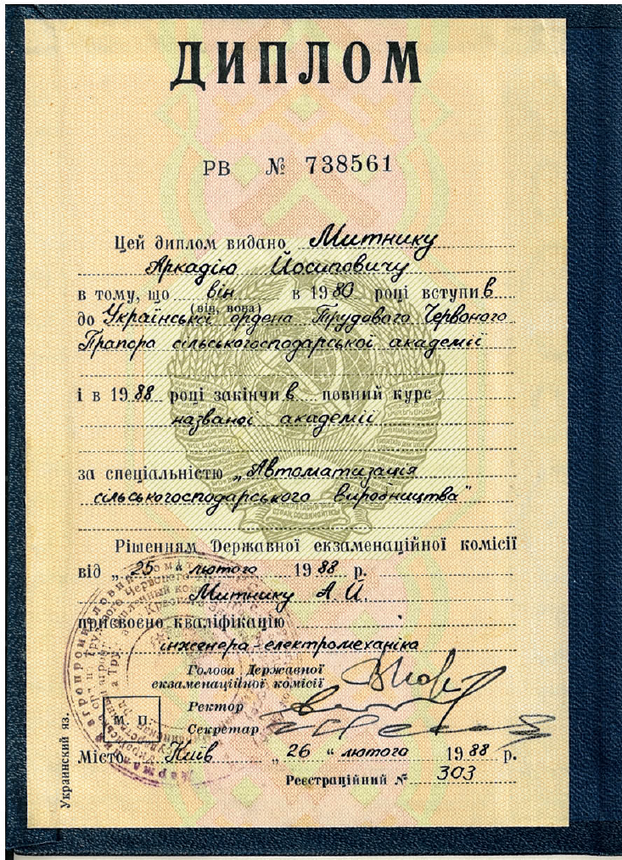 ДИПЛОМ
РВ № 738561
Цей диплом видано Митнику
Аркадію Йосиповичу
в тому, що він в 1980 році вступив
(він, вона)
до Української ордена Трудового Червоного
Прапора сільськогосподарської академії
і в 1988 році закінчив повний курс
названої академії
за спеціальністю „Автоматизація
сільськогосподарського виробництва"
Рішенням Державної екзаменаційної комісії
від „25" лютого 1988 р.
Митнику А. Й.
присвоєно кваліфікацію
інженера-електромеханіка
Голова Державної
екзаменаційної комісії
Ректор
М. П.
Секретар
Місто Київ „26" лютого 1988 р.
Реєстраційний № 303
Украинский яз.